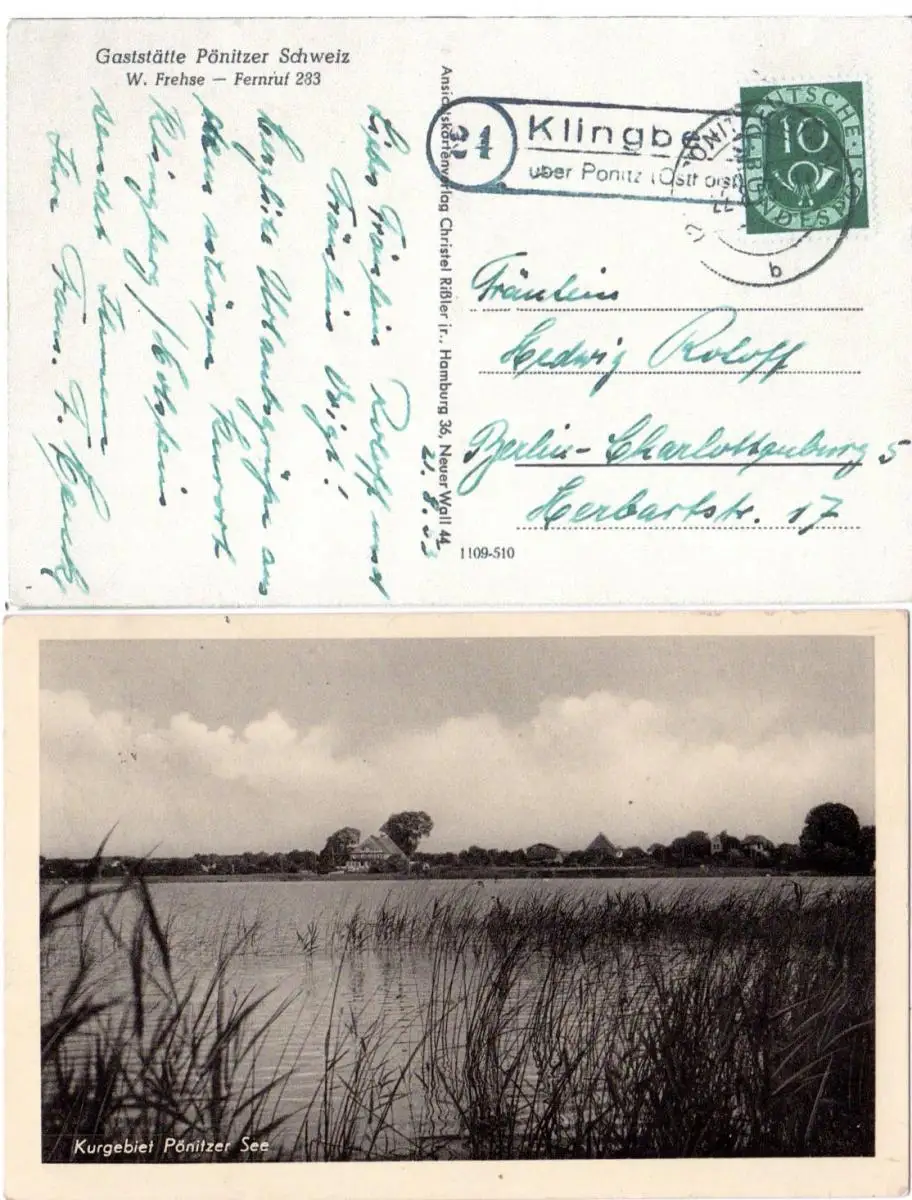 Gaststätte Pönitzer Schweiz
W. Frehse — Fernruf 233
Liebe Fräulein Roloff und
Fräulein Voigt!
herzliche Urlaubsgrüße aus
dem
Kurort
Klingberg / Holstein
sendet Ihnen
Ihre Fam. F.
21. 8. 53
Ansichtskartenverlag Christel Rißler jr., Hamburg 36, Neuer Wall 44
24
Klingbe
über Pönitz (Ostholst)
DEUTSCHE
BUNDESPOST
10
b
Fräulein
Hedwig Roloff
Berlin-Charlottenburg 5
Herbartstr. 17
1109-510
Kurgebiet Pönitzer See